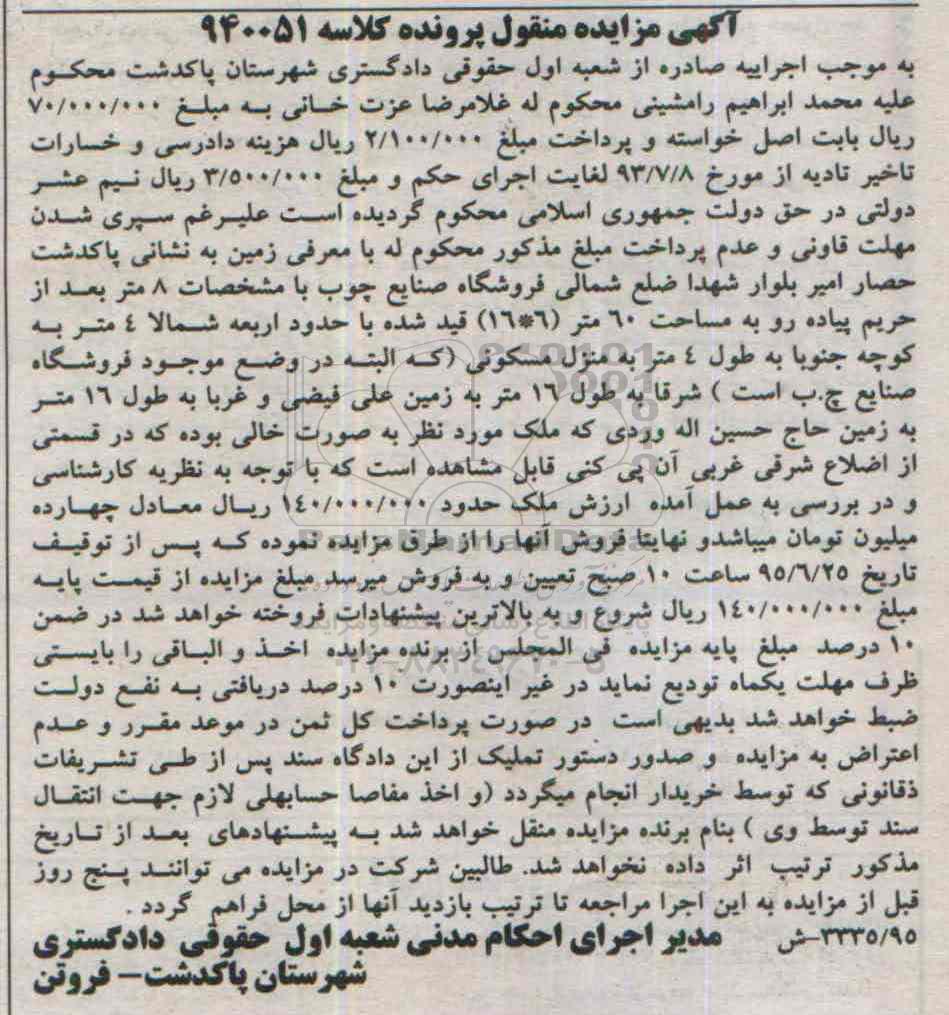 آگهی مزایده منقول پرونده کلاسه ۹۴۰۰۵۱
به موجب اجراییه صادره از شعبه اول حقوقی دادگستری شهرستان پاکدشت محکوم
علیه محمد ابراهیم رامشینی محکوم له غلامرضا عزت خانی به مبلغ ۷۰/۰۰۰/۰۰۰
ریال بابت اصل خواسته و پرداخت مبلغ ۲/۱۰۰/۰۰۰ ریال هزینه دادرسی و خسارات
تاخیر تادیه از مورخ ۹۳/۷/۸ لغایت اجرای حکم و مبلغ ۳/۵۰۰/۰۰۰ ریال نیم عشر
دولتی در حق دولت جمهوری اسلامی محکوم گردیده است علیرغم سپری شدن
مهلت قاونی و عدم پرداخت مبلغ مذکور محکوم له با معرفی زمین به نشانی پاکدشت
حصار امیر بلوار شهدا ضلع شمالی فروشگاه صنایع چوب با مشخصات ۸ متر بعد از
حریم پیاده رو به مساحت ۶۰ متر (۶*۱۶) قید شده با حدود اربعه شمالا ۴ متر به
کوچه جنوبا به طول ۴ متر به منزل مسکونی (که البته در وضع موجود فروشگاه
صنایع چ.ب است ) شرقا به طول ۱۶ متر به زمین علی فیضی و غربا به طول ۱۶ متر
به زمین حاج حسین اله وردی که ملک مورد نظر به صورت خالی بوده که در قسمتی
از اضلاع شرقی غربی آن پی کنی قابل مشاهده است که با توجه به نظریه کارشناسی
و در بررسی به عمل آمده ارزش ملک حدود ۱۴۰/۰۰۰/۰۰۰ ریال معادل چهارده
میلیون تومان میباشدو نهایتا فروش آنها را از طرق مزایده نموده که پس از توقیف
تاریخ ۹۵/۶/۲۵ ساعت ۱۰ صبح تعیین و به فروش میرسد مبلغ مزایده از قیمت پایه
مبلغ ۱۴۰/۰۰۰/۰۰۰ ریال شروع و به بالاترین پیشنهادات فروخته خواهد شد در ضمن
۱۰ درصد مبلغ پایه مزایده فی المجلس از برنده مزایده اخذ و الباقی را بایستی
ظرف مهلت یکماه تودیع نماید در غیر اینصورت ۱۰ درصد دریافتی به نفع دولت
ضبط خواهد شد بدیهی است در صورت پرداخت کل ثمن در موعد مقرر و عدم
اعتراض به مزایده و صدور دستور تملیک از این دادگاه سند پس از طی تشریفات
ذقانونی که توسط خریدار انجام میگردد (و اخذ مفاصا حسابهلی لازم جهت انتقال
سند توسط وی ) بنام برنده مزایده منقل خواهد شد به پیشنهادهای بعد از تاریخ
مذکور ترتیب اثر داده نخواهد شد. طالبین شرکت در مزایده می توانند پنج روز
قبل از مزایده به این اجرا مراجعه تا ترتیب بازدید آنها از محل فراهم گردد .
۳۳۳۵/۹۵-ش مدیر اجرای احکام مدنی شعبه اول حقوقی دادگستری
شهرستان پاکدشت- فروتن